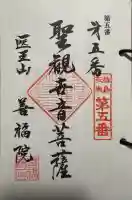 第五番
第五番
聖観世音菩薩
医王山
善福院
第五番